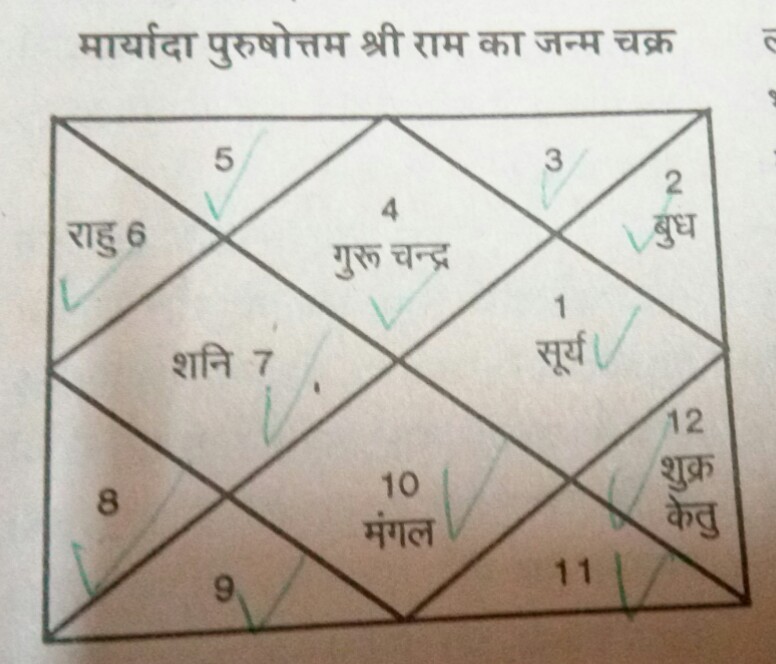 मार्यादा पुरुषोत्तम श्री राम का जन्म चक्र
5
3
2
बुध
4
गुरू चन्द्र
राहु 6
1
सूर्य
शनि 7
12
शुक्र
केतु
10
मंगल
8
9
11